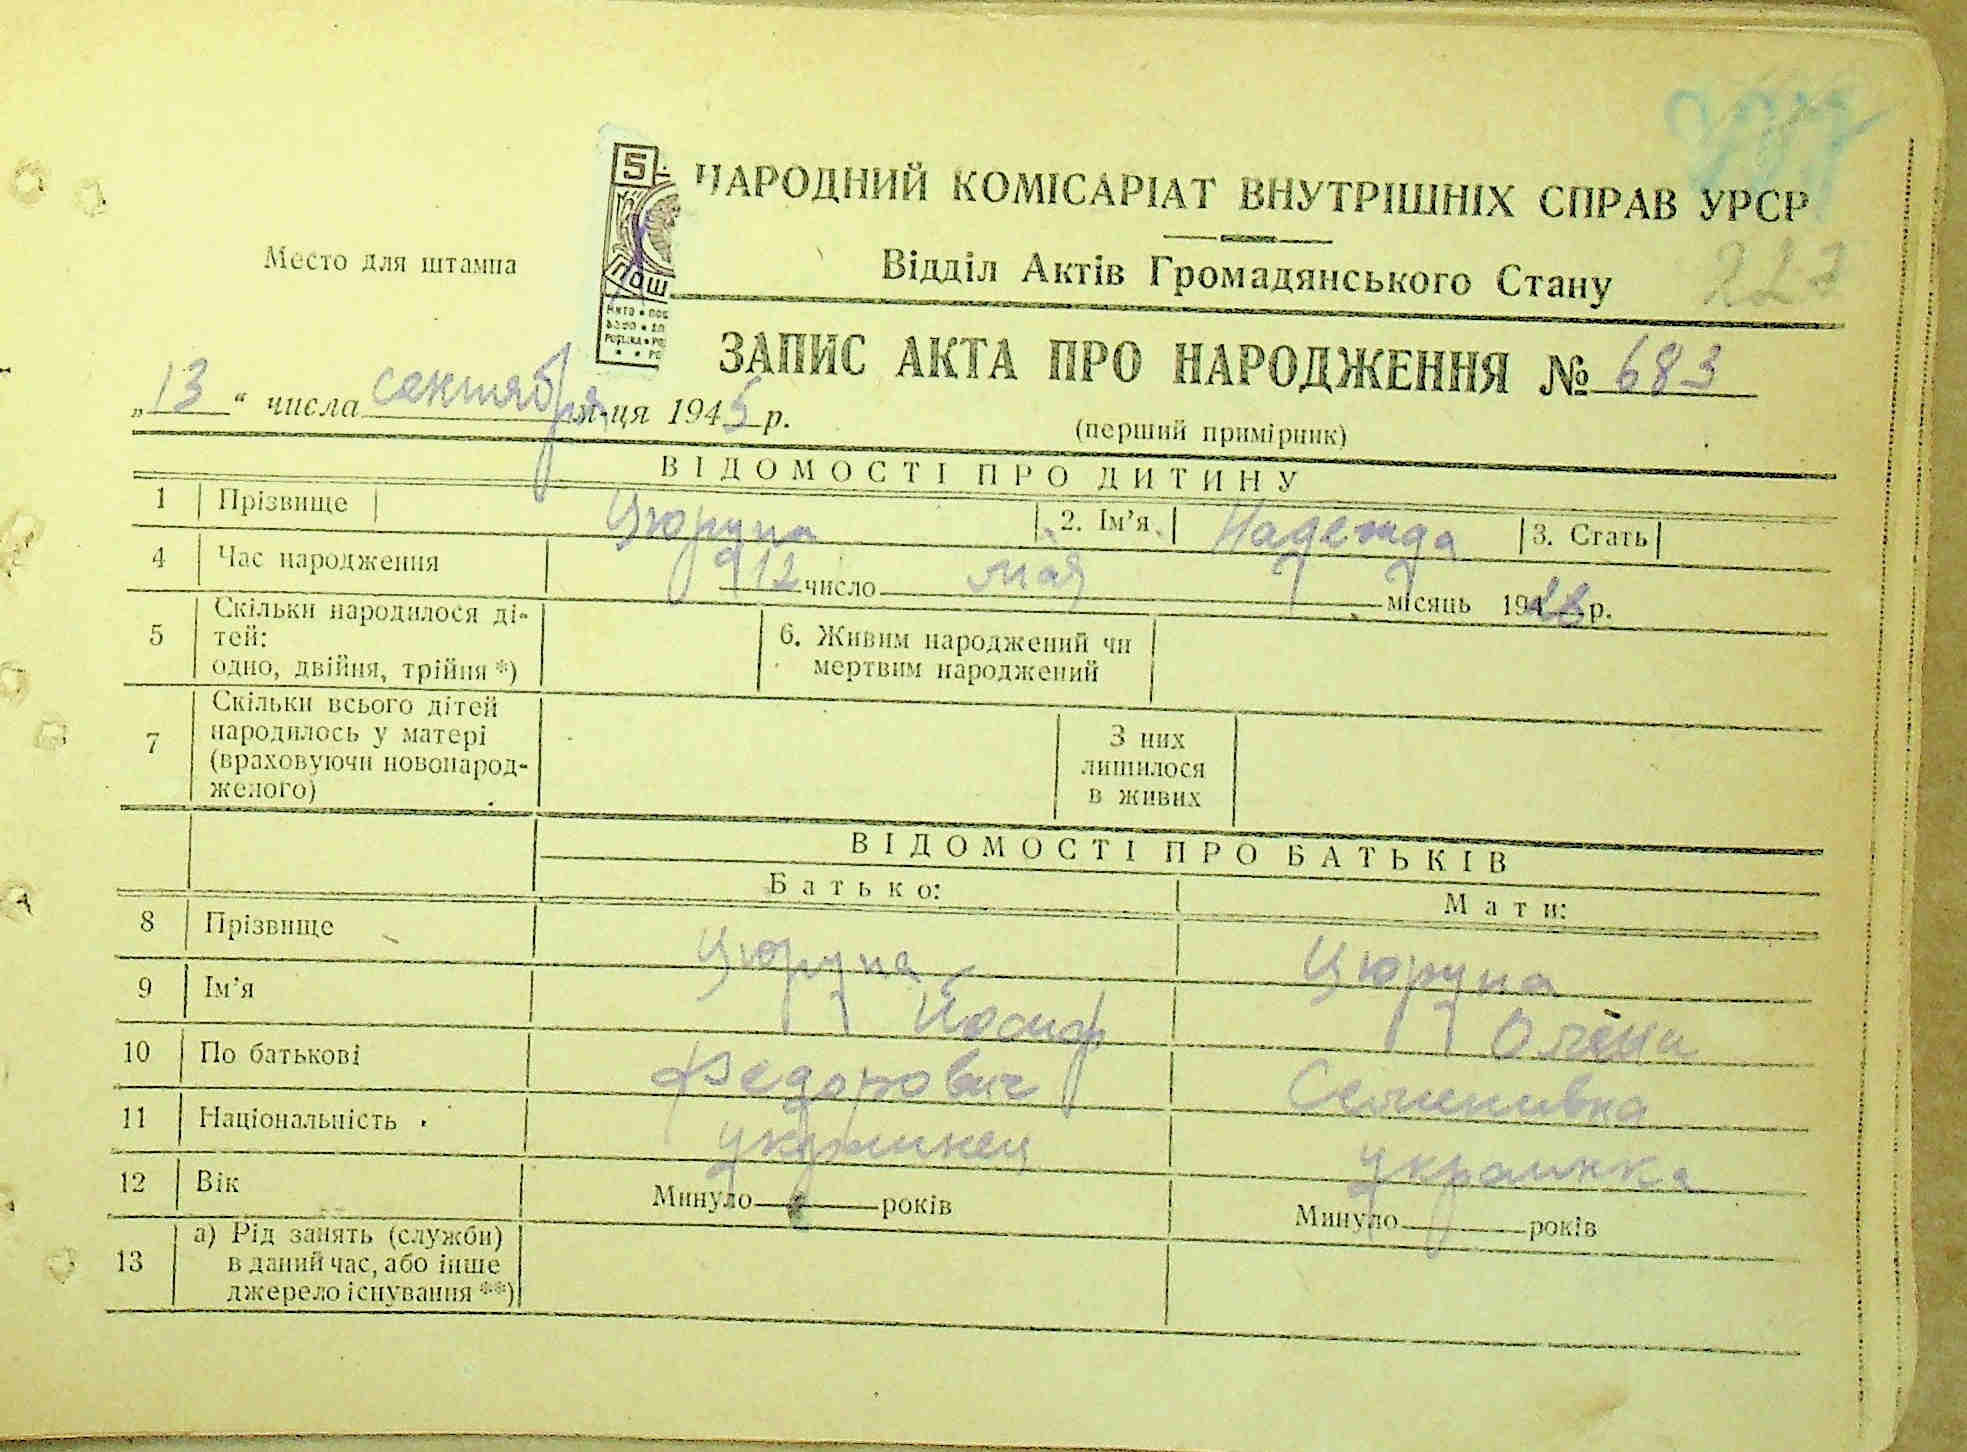 НАРОДНИЙ КОМІСАРІАТ ВНУТРІШНІХ СПРАВ УРСР
Место для штампа
Відділ Актів Громадянського Стану
5
ПОШ
ЗАПИС АКТА ПРО НАРОДЖЕННЯ № 683
„13“ числа сентября м-ця 1945 р.
(перший примірник)
ВІДОМОСТІ ПРО ДИТИНУ
1 Прізвище Цюрупа 2. Ім’я Надежда 3. Стать
4 Час народження 12 число мая місяць р.
5 Скільки народилося ді-
тей:
одно, двійня, трійня *)
6. Живим народжений чи
мертвим народжений
7 Скільки всього дітей
народилось у матері
(враховуючи новонарод-
женого)
З них
лишилося
в живих
ВІДОМОСТІ ПРО БАТЬКІВ
Батько: Мати:
8 Прізвище Цюрупа Цюрупа
9 Ім’я Йосиф Олена
10 По батькові Федорович
11 Національність украинец украинка
12 Вік Минуло років Минуло років
13 а) Рід занять (служби)
в даний час, або інше
джерело існування **)